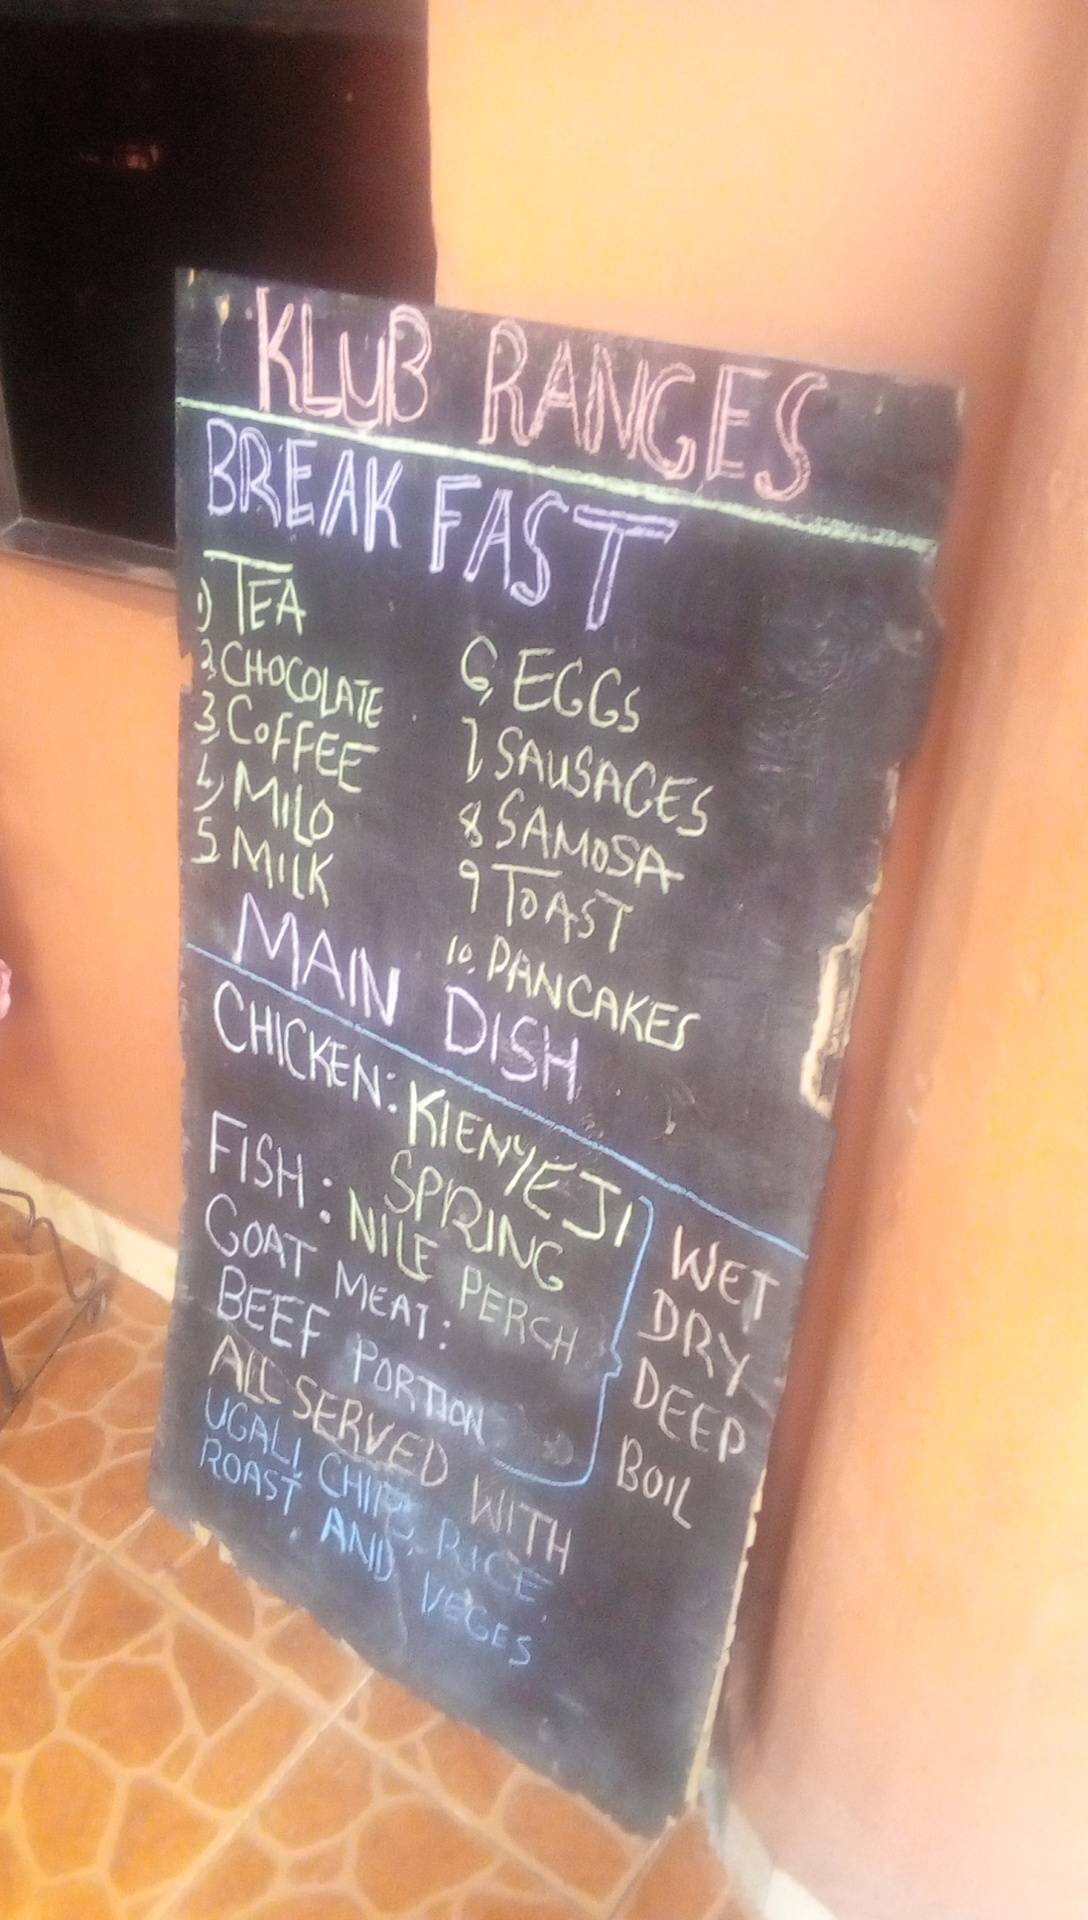 KLUB RANGES
BREAK FAST
1) TEA
2, CHOCOLATE
3, COFFEE
4, MILO
5 MILK
6, EGGS
7 SAUSAGES
8 SAMOSA
9 TOAST
10, PANCAKES
MAIN DISH
CHICKEN: KIENYEJI
SPRING
FISH: NILE PERCH
GOAT MEAT:
BEEF PORTION
WET
DRY
DEEP
BOIL
ALL SERVED WITH
UGALI, CHIPS, RICE,
ROAST, AND VEGES